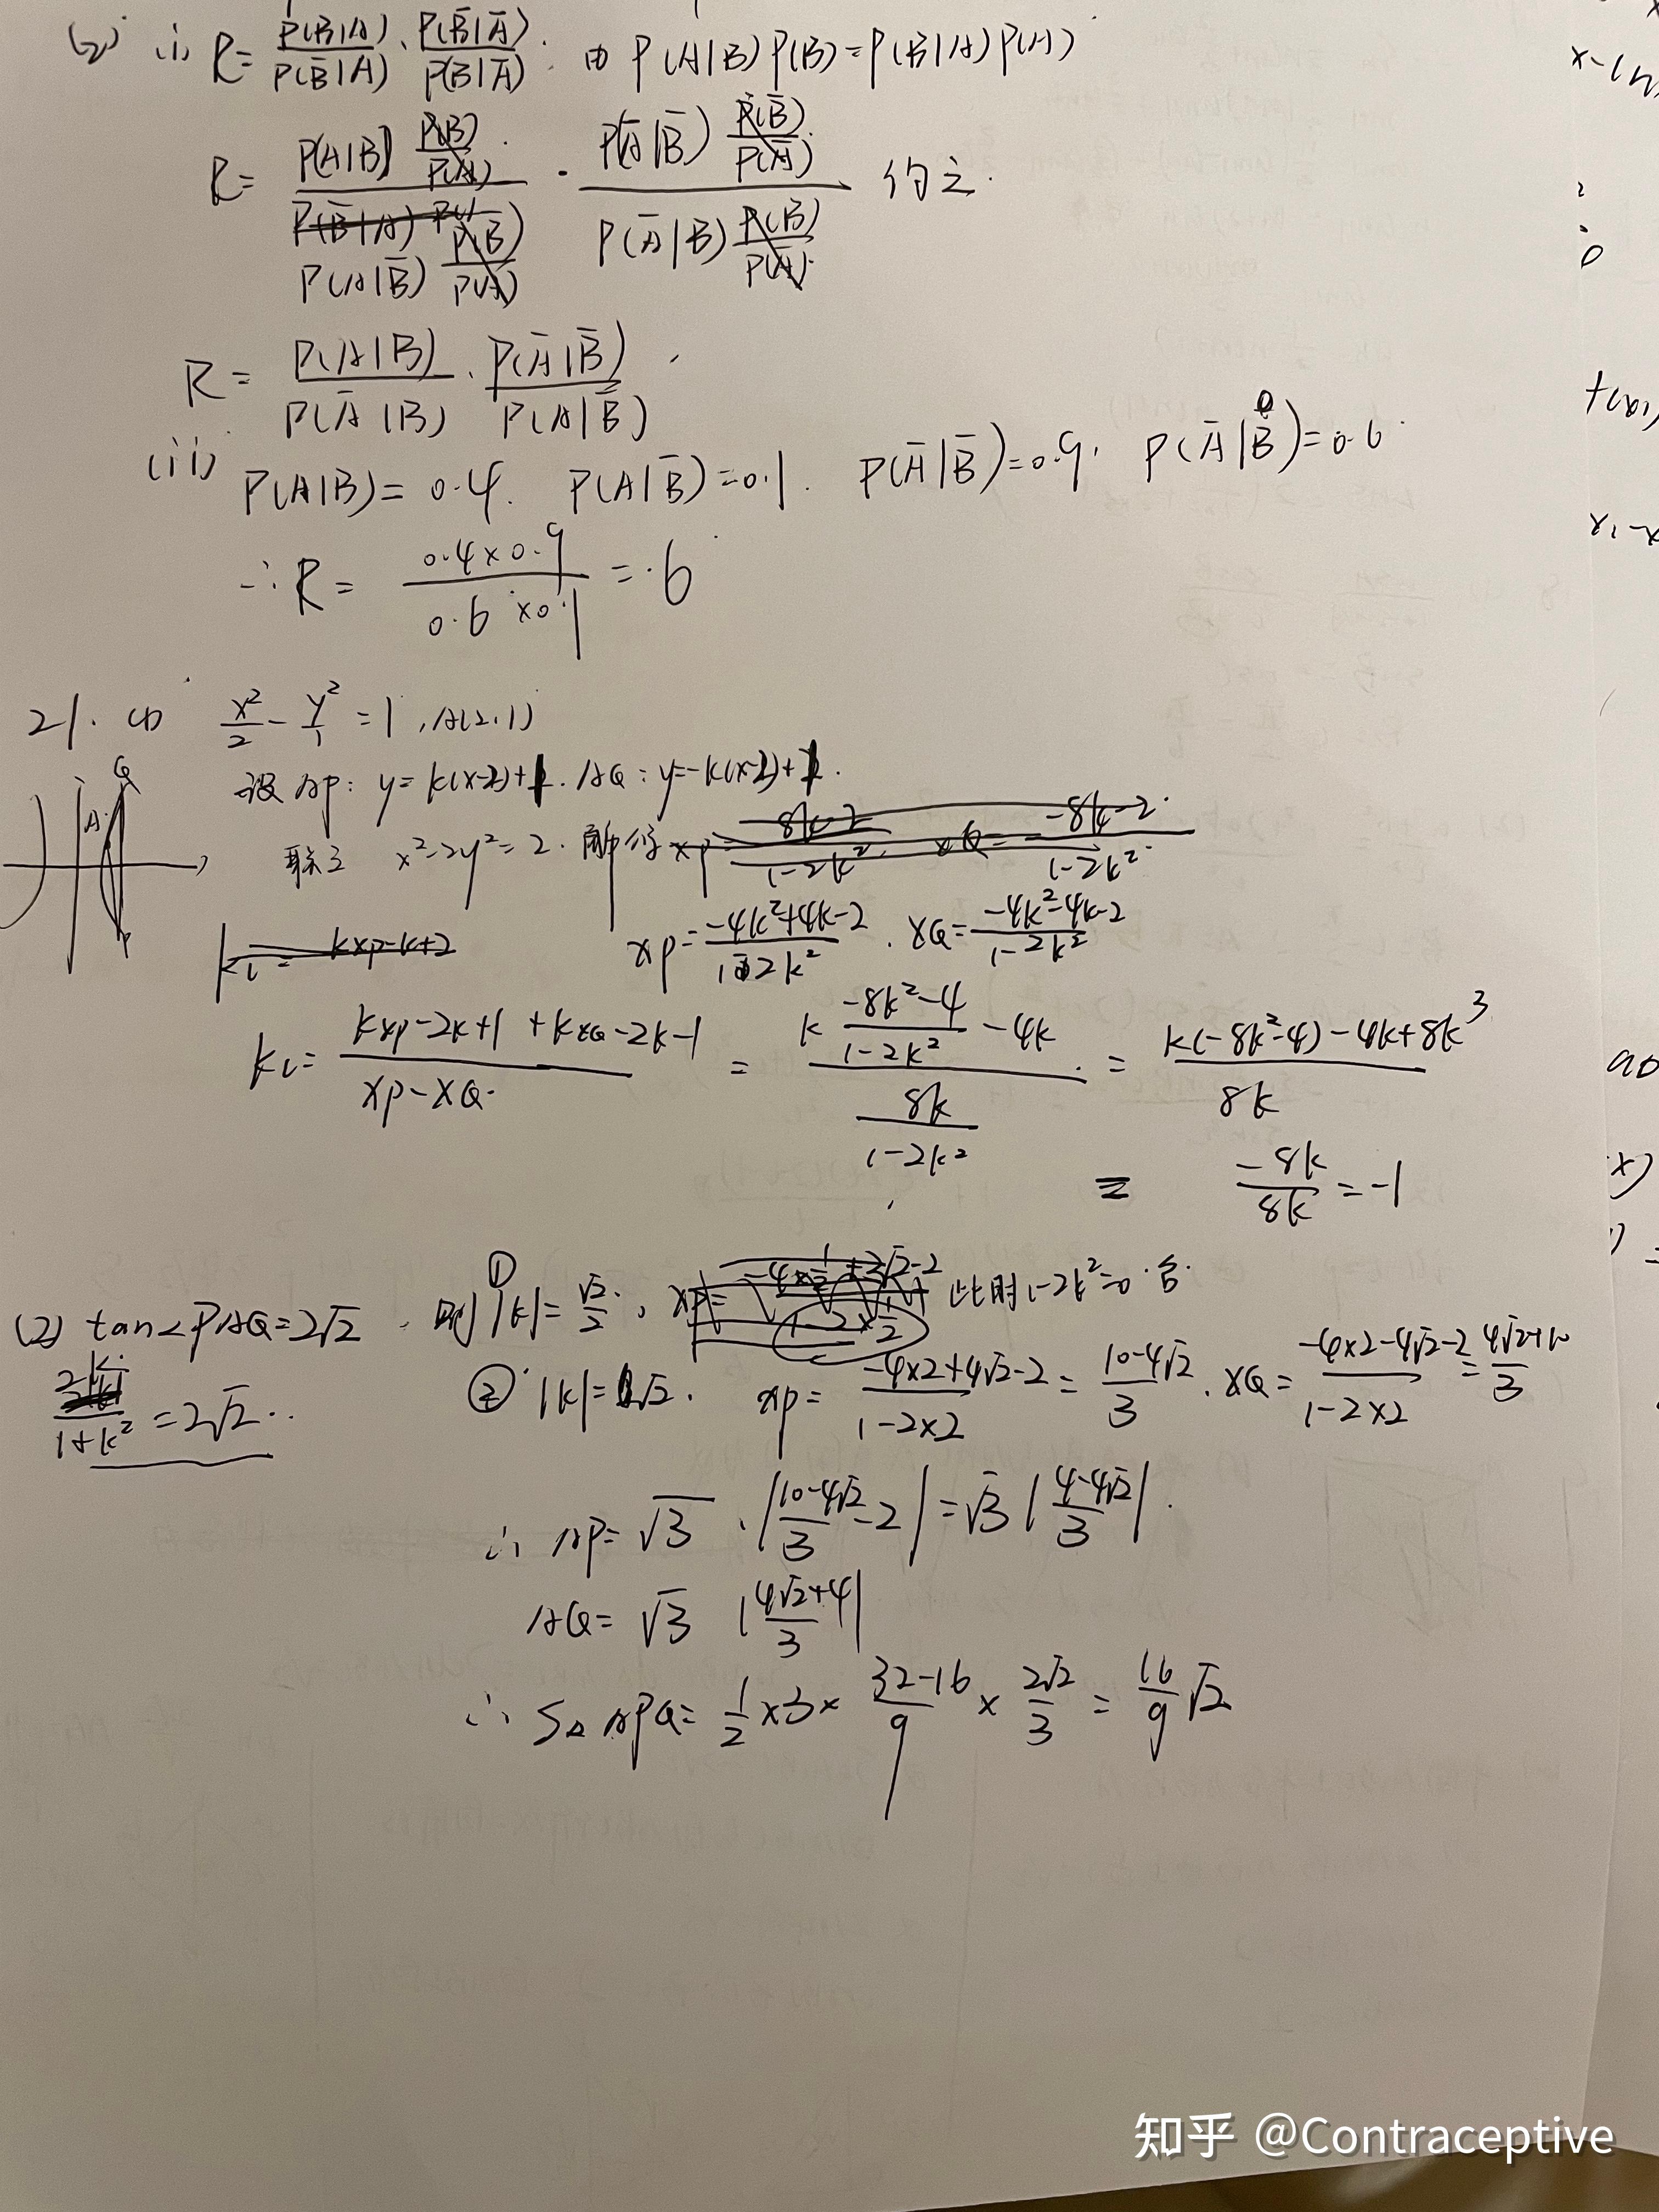 (2) (i) R = P(B|A)/P(B̄|A) · P(B̄|Ā)/P(B|Ā). 由 P(A|B)P(B)=P(B|A)P(A)
R = P(A|B) P(B)/P(A) / P(A|B̄) P(B̄)/P(A) · P(Ā|B̄) P(B̄)/P(Ā) / P(Ā|B) P(B)/P(Ā) 约之.
R = P(A|B)/P(Ā|B) · P(Ā|B̄)/P(A|B̄)
(ii) P(A|B)=0.4. P(A|B̄)=0.1. P(Ā|B̄)=0.9. P(Ā|B)=0.6.
∴ R = 0.4×0.9 / 0.6×0.1 = 6
21. (1) x²/2 - y²/1 = 1, A(2,1)
设 AP: y=k(x-2)+1. AQ: y=-k(x-2)+1.
联立 x²-2y²=2. 解得
xP = -4k²+4k-2 / 1-2k². xQ = -4k²-4k-2 / 1-2k²
kl = kxP-2k+1+kxQ-2k-1 / xP-xQ = k (-8k²-4 / 1-2k²) -4k / (8k / 1-2k²) = k(-8k²-4)-4k+8k³ / 8k
= -8k/8k = -1
(2) tan∠PAQ=2√2. 则 ① |k|=√2/2, 此时 1-2k²=0 舍.
2k/1+k² = 2√2..
② |k|=√2. xP = -4×2+4√2-2 / 1-2×2 = 10-4√2 / 3. xQ = -4×2-4√2-2 / 1-2×2 = 4√2+10 / 3
∴ AP = √3 · |10-4√2 / 3 - 2| = √3 |4-4√2 / 3|.
AQ = √3 |4√2+4 / 3|
∴ S△APQ = 1/2 ×3× 32-16/9 × 2√2/3 = 16/9 √2
A
Q
P
知乎 @Contraceptive